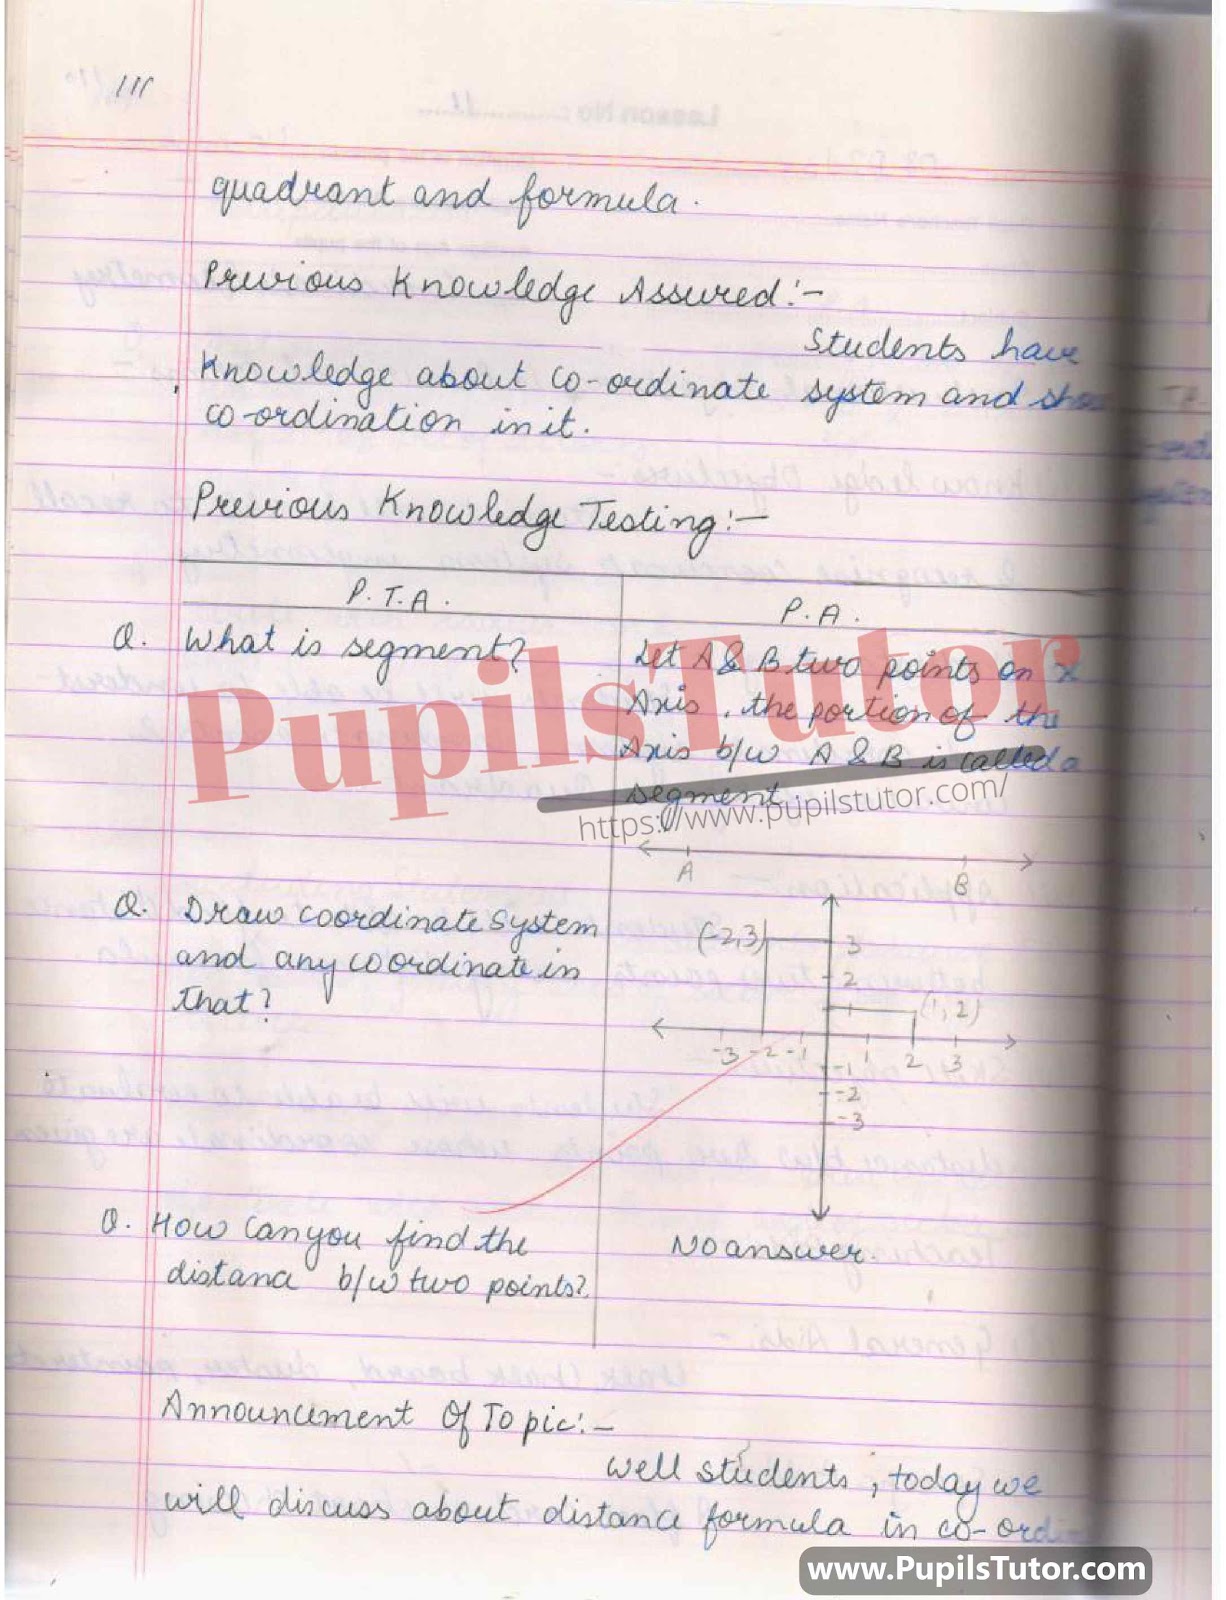 111
quadrant and formula.
Previous Knowledge Assured:-
Students have
Knowledge about co-ordinate system and
co-ordination in it.
Previous Knowledge Testing:-
P.T.A.
P.A.
Q. What is segment?
Let A & B two points on x
Axis, the portion of the
Axis b/w A & B is called a
segment
A B
PupilsTutor
https://www.pupilstutor.com/
Q. Draw coordinate system
and any coordinate in
that?
(-2,3) 3
2
1 (1,2)
-3 -2 -1 1 2 3
-1
-2
-3
Q. How can you find the
distanc b/w two points?
No answer.
Announcement Of Topic:-
Well students, today we
will discuss about distance formula in co-ordi
www.PupilsTutor.com